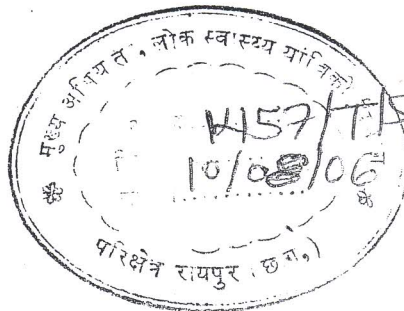 मुख्य अभियंता, लोक स्वास्थ्य यांत्रिकी
10/08/06
परिक्षेत्र रायपुर (छ.ग.)